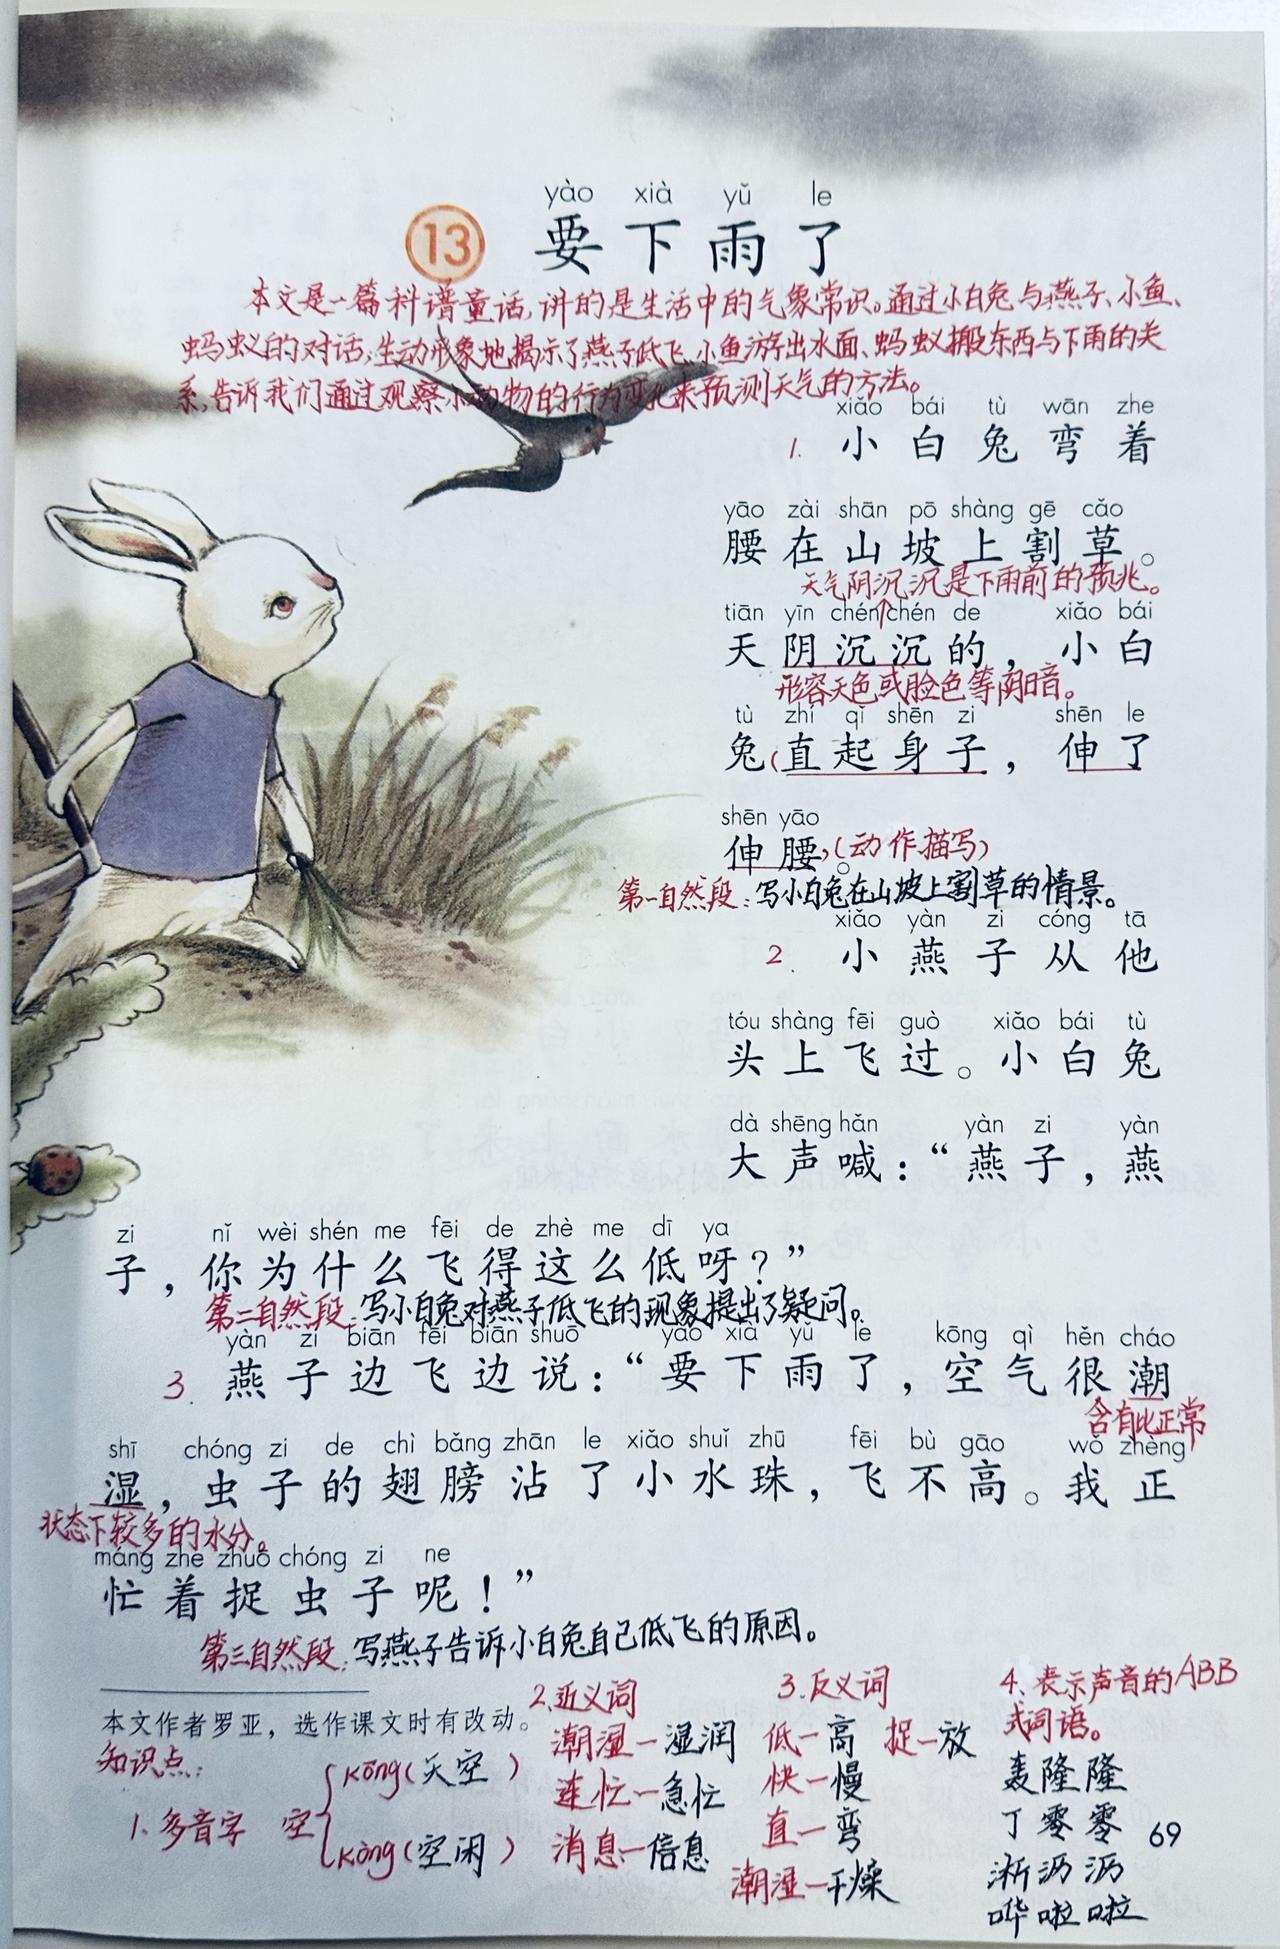 yào xià yǔ le
13 要下雨了
本文是一篇科谱童话,讲的是生活中的气象常识。通过小白兔与燕子、小鱼、
蚂蚁的对话,生动形象地揭示了燕子低飞、小鱼游出水面、蚂蚁搬东西与下雨的关
系,告诉我们通过观察小动物的行为变化来预测天气的方法。
xiǎo bái tù wān zhe
1. 小白兔弯着
yāo zài shān pō shàng gē cǎo
腰在山坡上割草。
天气阴沉沉是下雨前的预兆。
tiān yīn chén chén de xiǎo bái
天阴沉沉的，小白
形容天色或脸色等阴暗。
tù zhí qǐ shēn zi shēn le
兔(直起身子，伸了
shēn yāo
伸腰。)(动作描写)
第一自然段:写小白兔在山坡上割草的情景。
xiǎo yàn zi cóng tā
2. 小燕子从他
tóu shàng fēi guò xiǎo bái tù
头上飞过。小白兔
dà shēng hǎn yàn zi yàn
大声喊：“燕子，燕
zi nǐ wèi shén me fēi de zhè me dī ya
子，你为什么飞得这么低呀？”
第二自然段:写小白兔对燕子低飞的现象提出了疑问。
yàn zi biān fēi biān shuō yào xià yǔ le kōng qì hěn cháo
3. 燕子边飞边说：“要下雨了，空气很潮
含有比正常
shī chóng zi de chì bǎng zhān le xiǎo shuǐ zhū fēi bù gāo wǒ zhèng
湿，虫子的翅膀沾了小水珠，飞不高。我正
状态下较多的水分。
máng zhe zhuō chóng zi ne
忙着捉虫子呢！”
第三自然段:写燕子告诉小白兔自己低飞的原因。
本文作者罗亚，选作课文时有改动。
知识点:
1、多音字 空
kōng(天空)
kòng(空闲)
2、近义词
潮湿—湿润
连忙—急忙
消息—信息
3、反义词
低—高 捉—放
快—慢
直—弯
潮湿—干燥
4、表示声音的ABB
式词语。
轰隆隆
丁零零
淅沥沥
哗啦啦
69